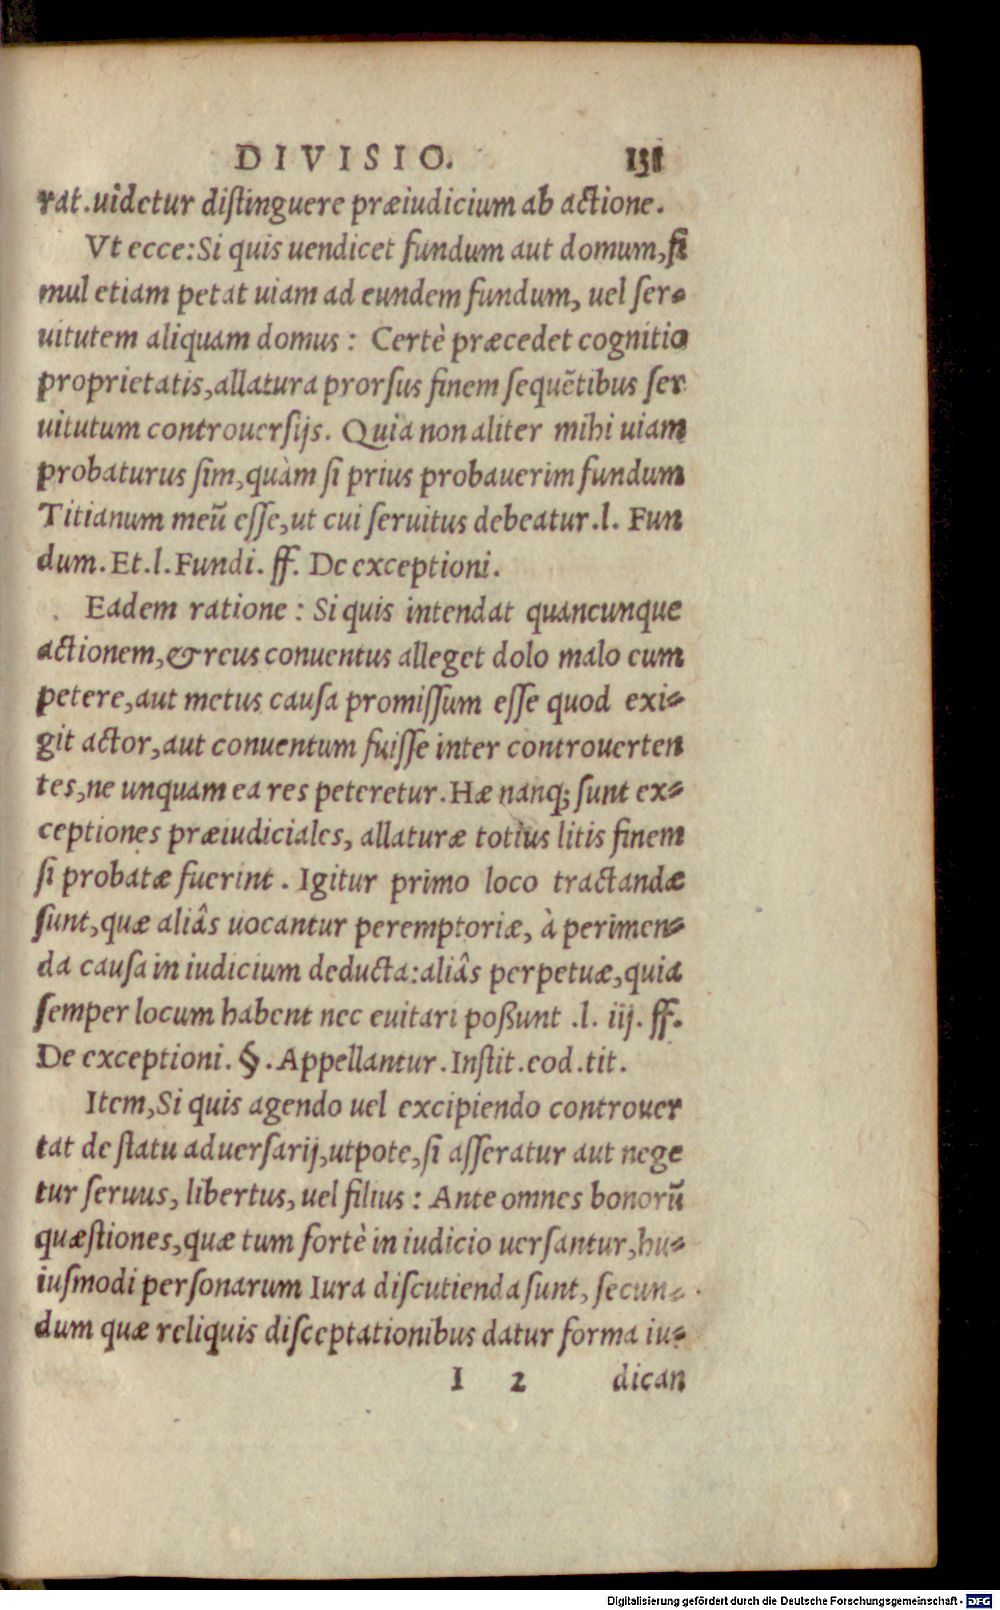 DIVISIO. 131
rat. uidetur distinguere præiudicium ab actione.
Vt ecce: Si quis uendicet fundum aut domum, si
mul etiam petat uiam ad eundem fundum, uel ser-
uitutem aliquam domus: Certè præcedet cognitio
proprietatis, allatura prorsus finem sequẽtibus ser
uitutum controuersijs. Quia non aliter mihi uiam
probaturus sim, quàm si prius probauerim fundum
Titianum meũ esse, ut cui seruitus debeatur. l. Fun
dum. Et. l. Fundi. ff. De exceptioni.
Eadem ratione: Si quis intendat quancunque
actionem, & reus conuentus alleget dolo malo eum
petere, aut metus causa promissum esse quod exi-
git actor, aut conuentum fuisse inter controuerten
tes, ne unquam ea res peteretur. Hæ nanq; sunt ex-
ceptiones præiudiciales, allaturæ totius litis finem
si probatæ fuerint. Igitur primo loco tractandæ
sunt, quæ aliâs uocantur peremptoriæ, à perimen-
da causa in iudicium deducta: aliâs perpetuæ, quia
semper locum habent nec euitari poßunt .l. iij. ff.
De exceptioni. §. Appellantur. Instit. eod. tit.
Item, Si quis agendo uel excipiendo controuer
tat de statu aduersarij, utpote, si asseratur aut nege
tur seruus, libertus, uel filius: Ante omnes bonorũ
quæstiones, quæ tum fortè in iudicio uersantur, hu-
iusmodi personarum Iura discutienda sunt, secun-
dum quæ reliquis disceptationibus datur forma iu-
I 2 dican
Digitalisierung gefördert durch die Deutsche Forschungsgemeinschaft - DFG